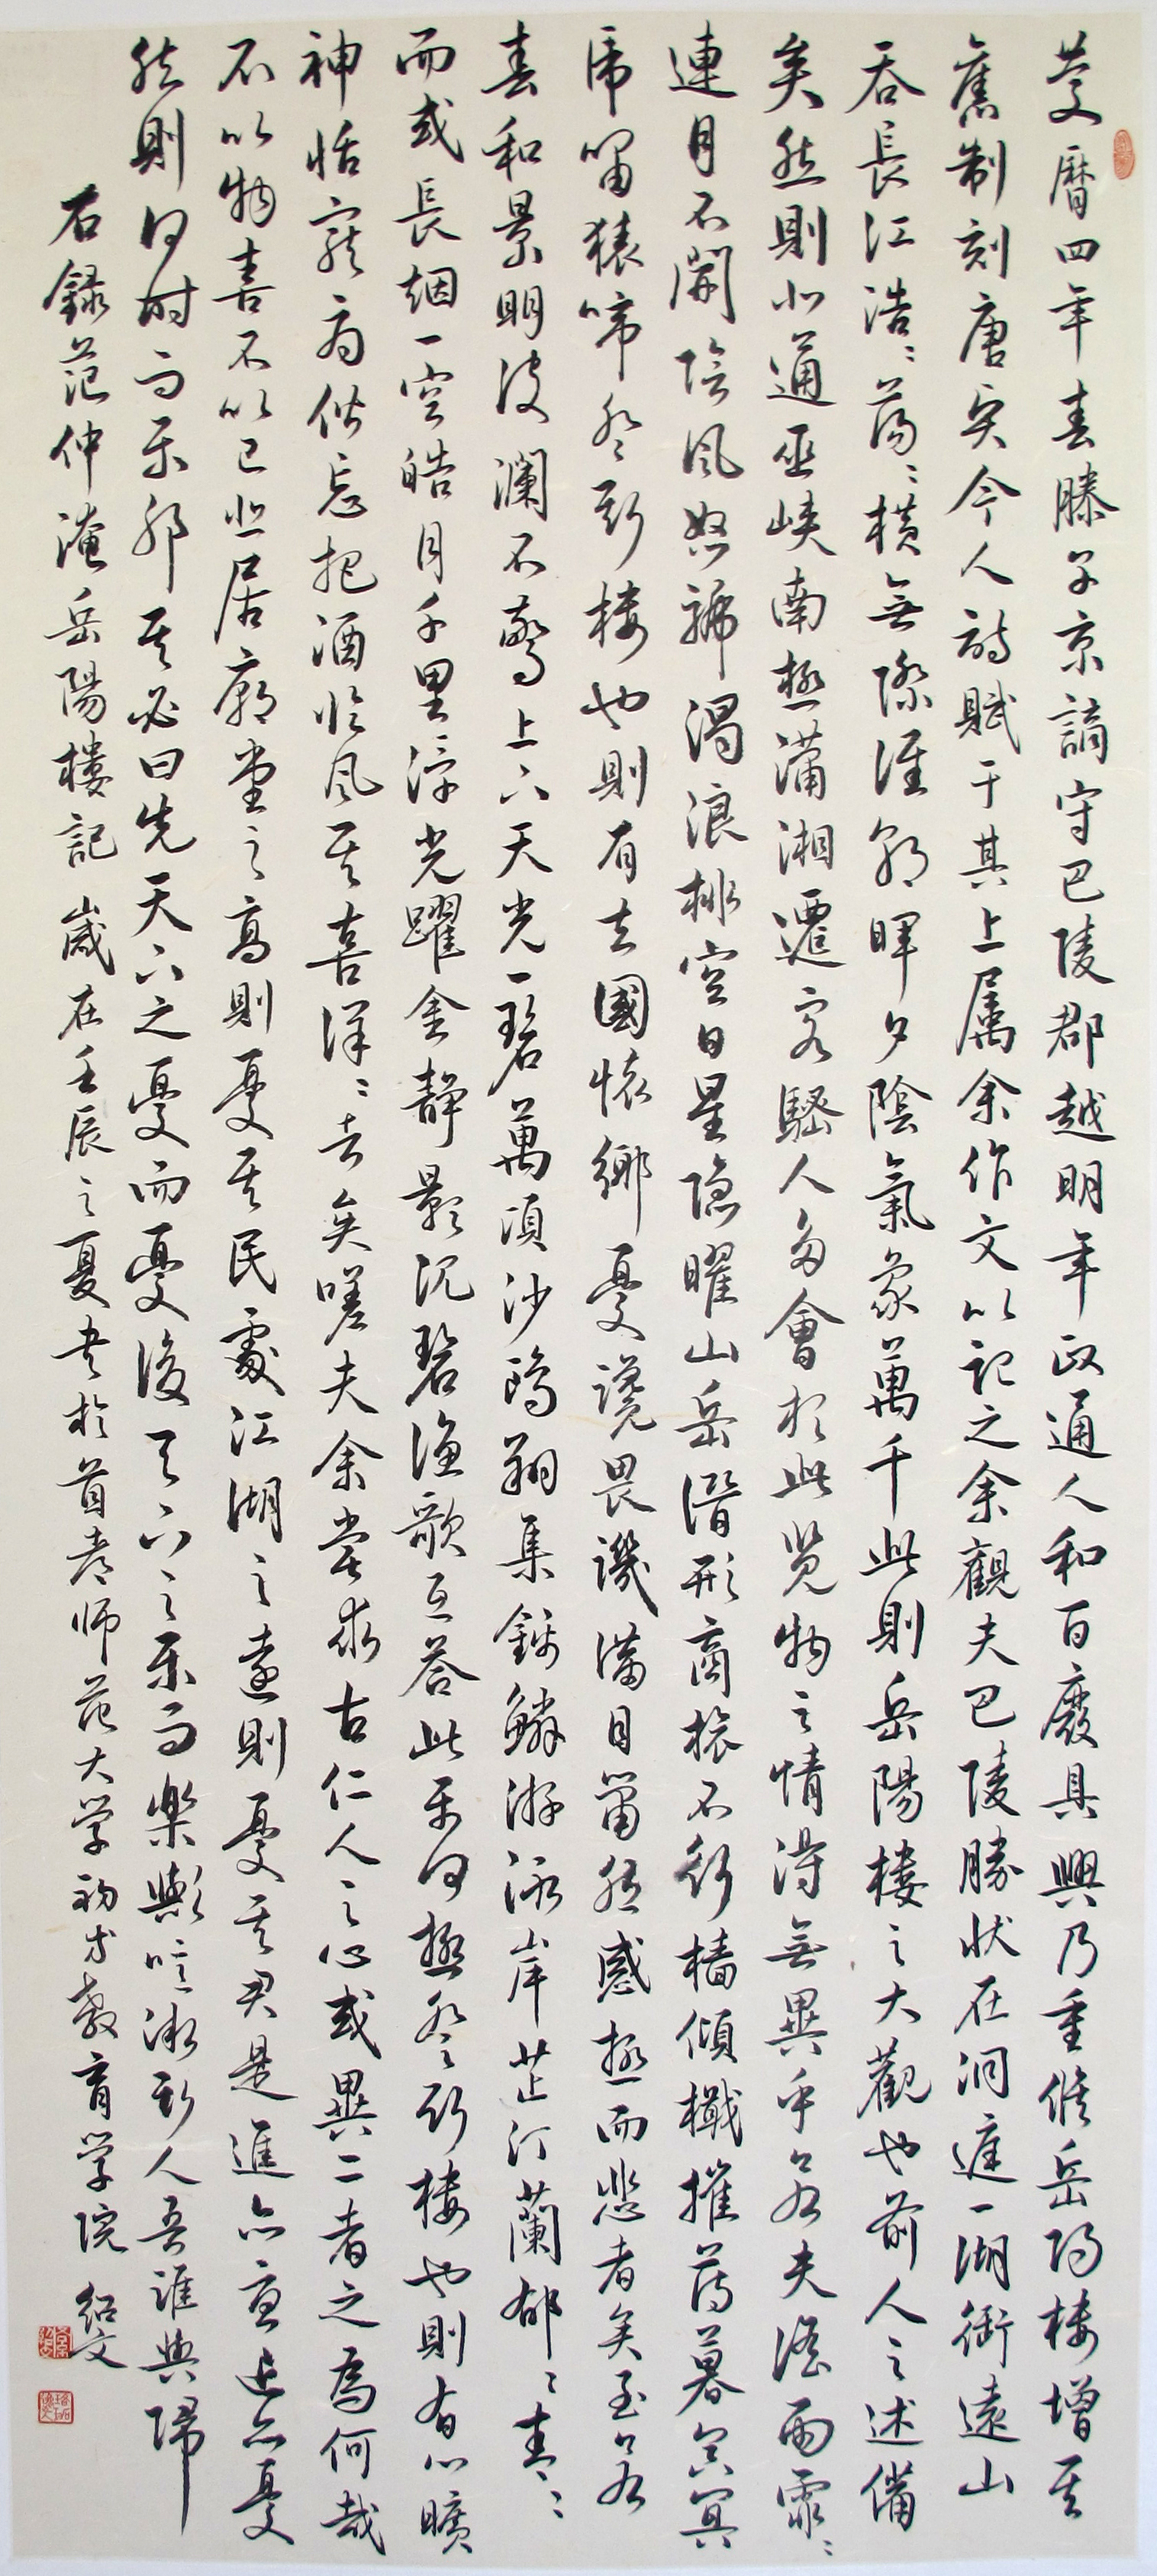 慶曆四年春滕子京謫守巴陵郡越明年政通人和百廢具興乃重修岳陽樓增其
舊制刻唐賢今人詩賦于其上属余作文以記之余觀夫巴陵勝狀在洞庭一湖銜遠山
吞長江浩〻蕩〻橫無際涯朝暉夕陰氣象萬千此則岳陽樓之大觀也前人之述備
矣然則北通巫峽南極瀟湘遷客騷人多會於此覽物之情得無異乎若夫淫雨霏〻
連月不開陰風怒號濁浪排空日星隱曜山岳潛形商旅不行檣傾檝摧薄暮冥冥
虎嘯猿啼登斯樓也則有去國懷鄉憂讒畏譏滿目蕭然感極而悲者矣至若
春和景明波瀾不驚上下天光一碧萬頃沙鷗翔集錦鱗游泳岸芷汀蘭郁〻青〻
而或長烟一空皓月千里浮光躍金靜影沉碧漁歌互答此樂何極登斯樓也則有心曠
神怡寵辱偕忘把酒臨風其喜洋〻者矣嗟夫余嘗求古仁人之心或異二者之為何哉
不以物喜不以己悲居廟堂之高則憂其民處江湖之遠則憂其君是進亦憂退亦憂
然則何時而樂耶其必曰先天下之憂而憂後天下之樂而樂歟噫微斯人吾誰與歸
右錄范仲淹岳陽樓記歲在壬辰之夏書於首都師范大学初等教育学院 紹文